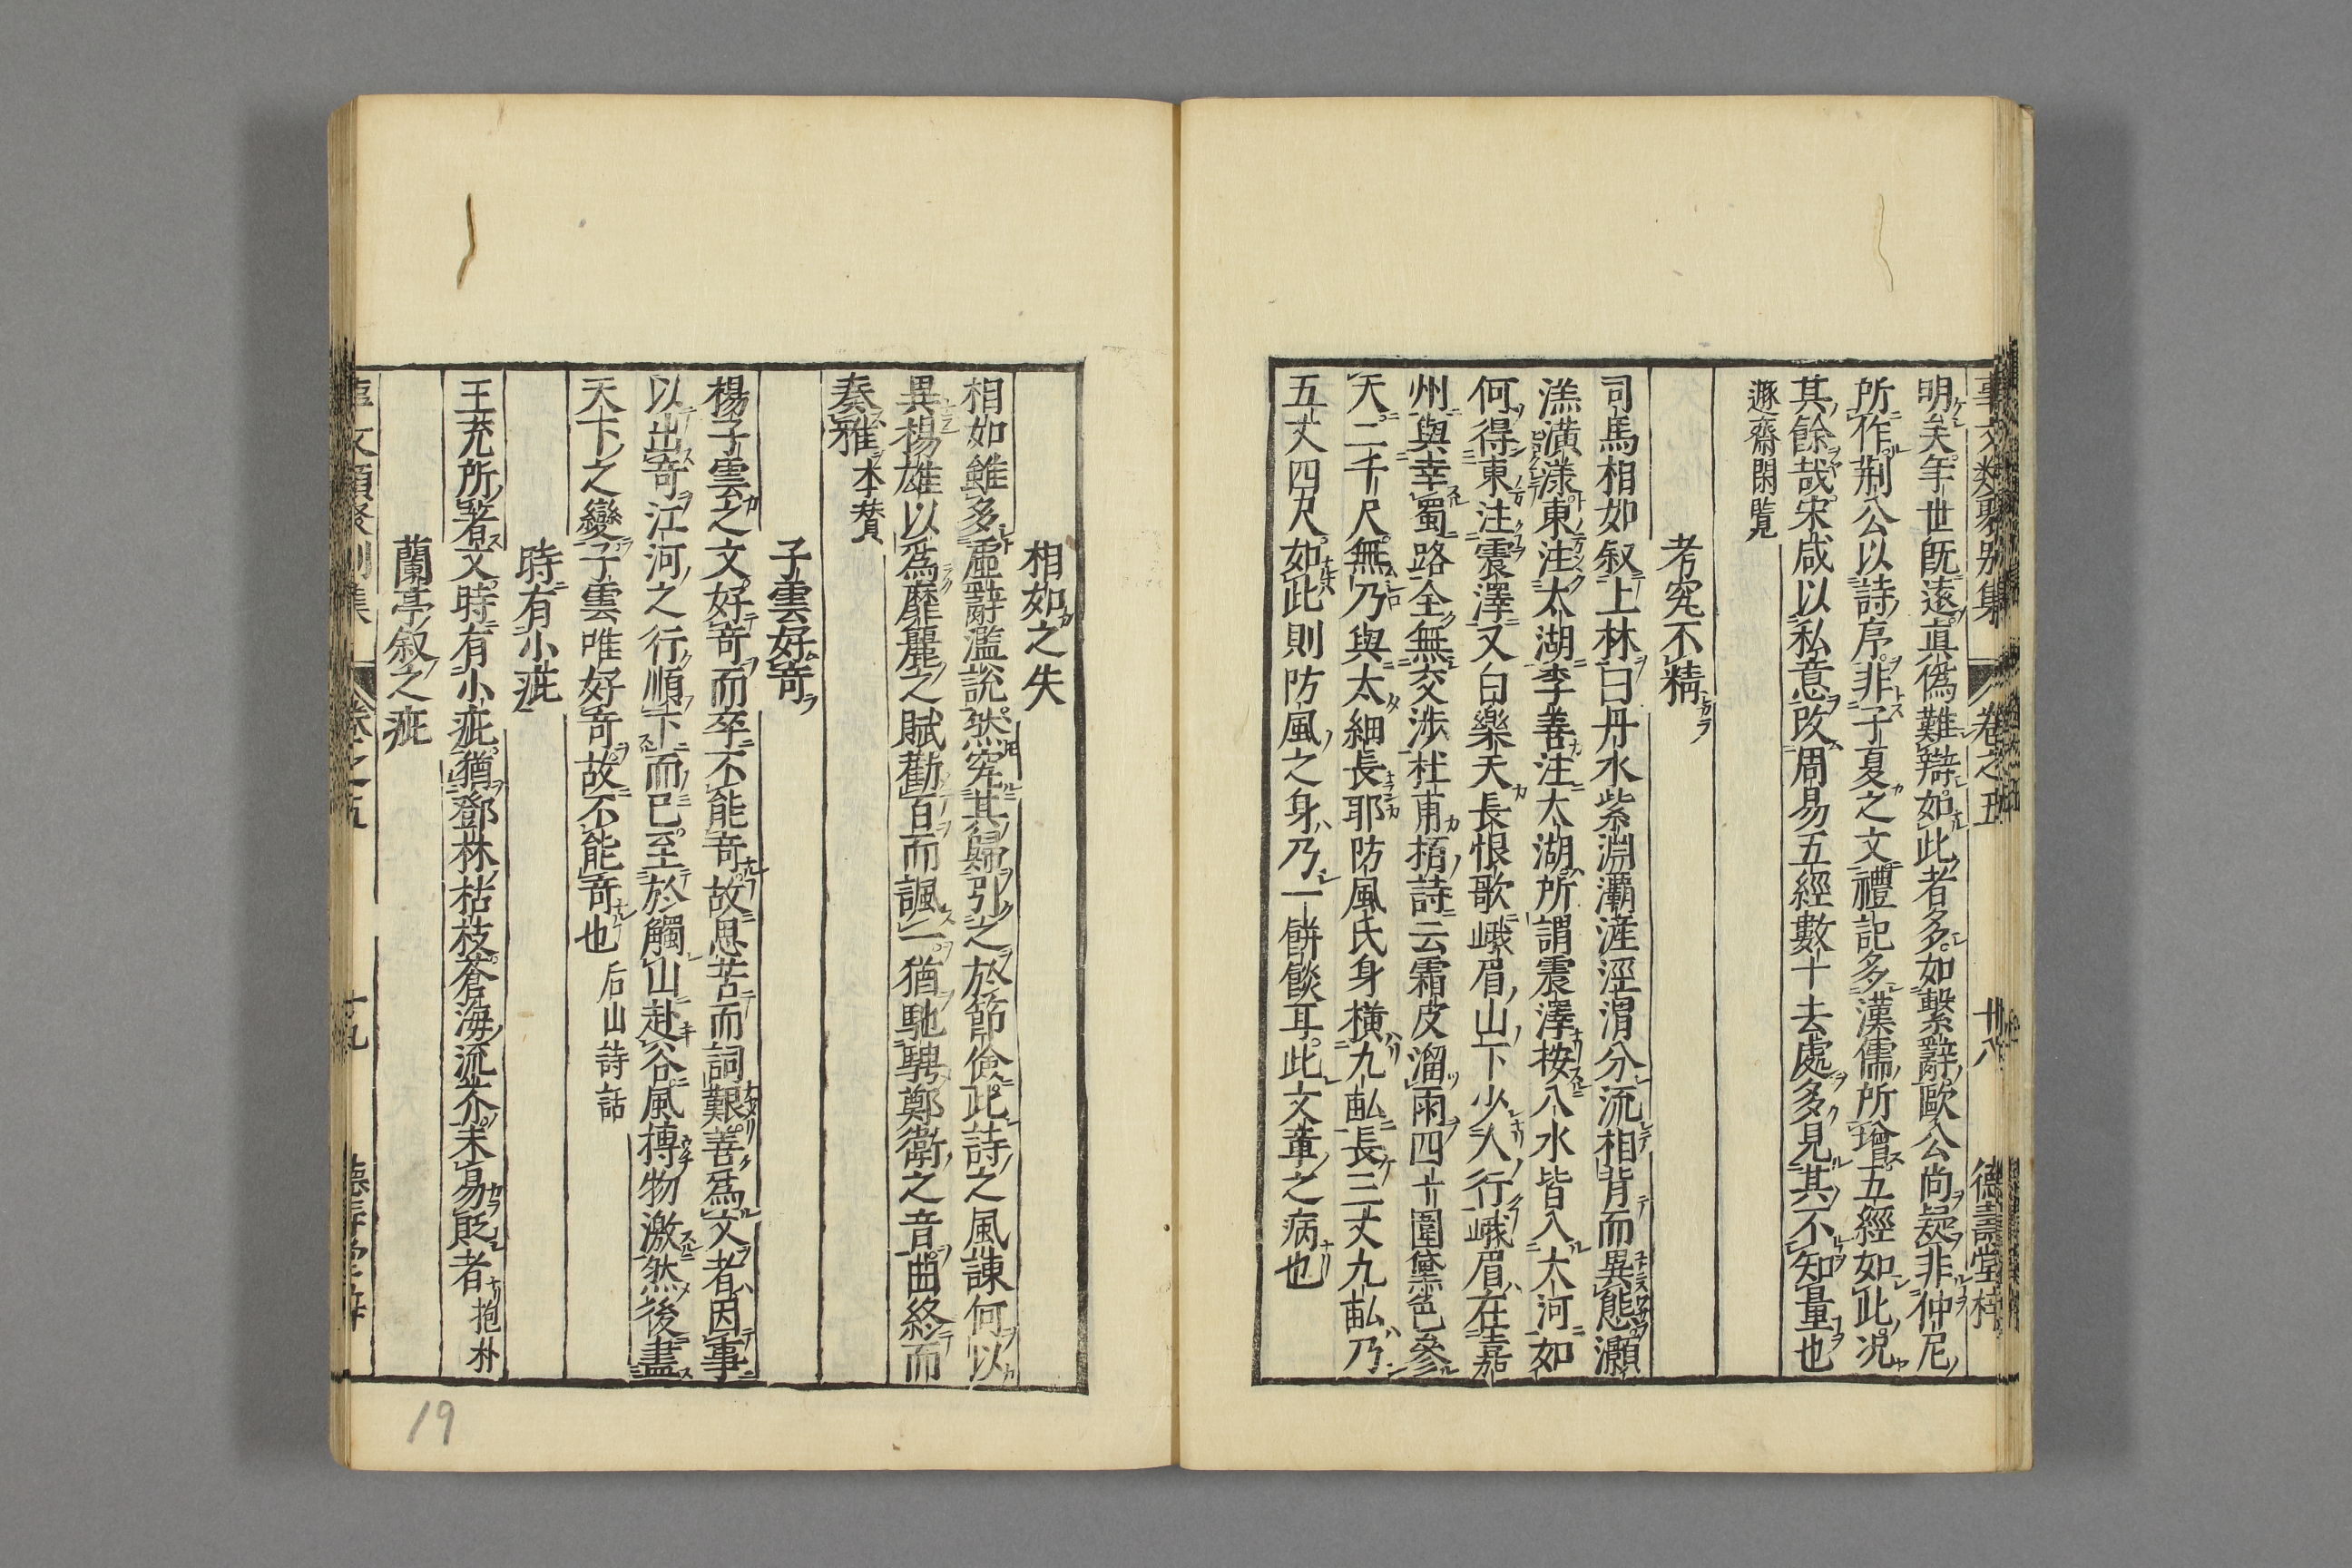 事文類聚别集 卷之五 十八 德壽堂梓
明矣年世旣遠真僞難辯如此者多如繫辭歐公尚疑非仲尼
所作荆公以詩序非子夏之文禮記多漢儒所增五經如此况
其餘哉宋咸以私意改周易五經數十去處多見其不知量也
遯齋閑覽
考究不精
司馬相如叙上林曰丹水紫淵灞滻涇渭分流相背而異態灝
溔潢漾東注太湖李善注太湖所謂震澤按八水皆入大河如
何得東注震澤又白樂天長恨歌峨眉山下少人行峨眉在嘉
州與幸蜀路全無交渉杜甫栢詩云霜皮溜雨四十圍黛色參
天二千尺無乃與太細長耶防風氏身横九畝長三丈九畝乃
五丈四尺如此則防風之身乃一餅餤耳此文章之病也
相如之失
相如雖多虚辭濫説然究其歸引之於節儉此詩之風諫何以
異楊雄以爲靡麗之賦勸百而諷一猶馳騁鄭衛之音曲終而
奏雅 本賛
子雲好竒
楊子雲之文好竒而卒不能竒故思苦而詞艱善爲文者因事
以出竒江河之行順下而已至於觸山赴谷風摶物激然後盡
天下之變子雲唯好竒故不能竒也 后山詩話
時有小疵
王充所著文時有小疵猶鄧林枯枝蒼海流芥未易貶者 抱朴
蘭亭叙之疵
事文類聚别集 卷之五 十九 德壽堂梓
19